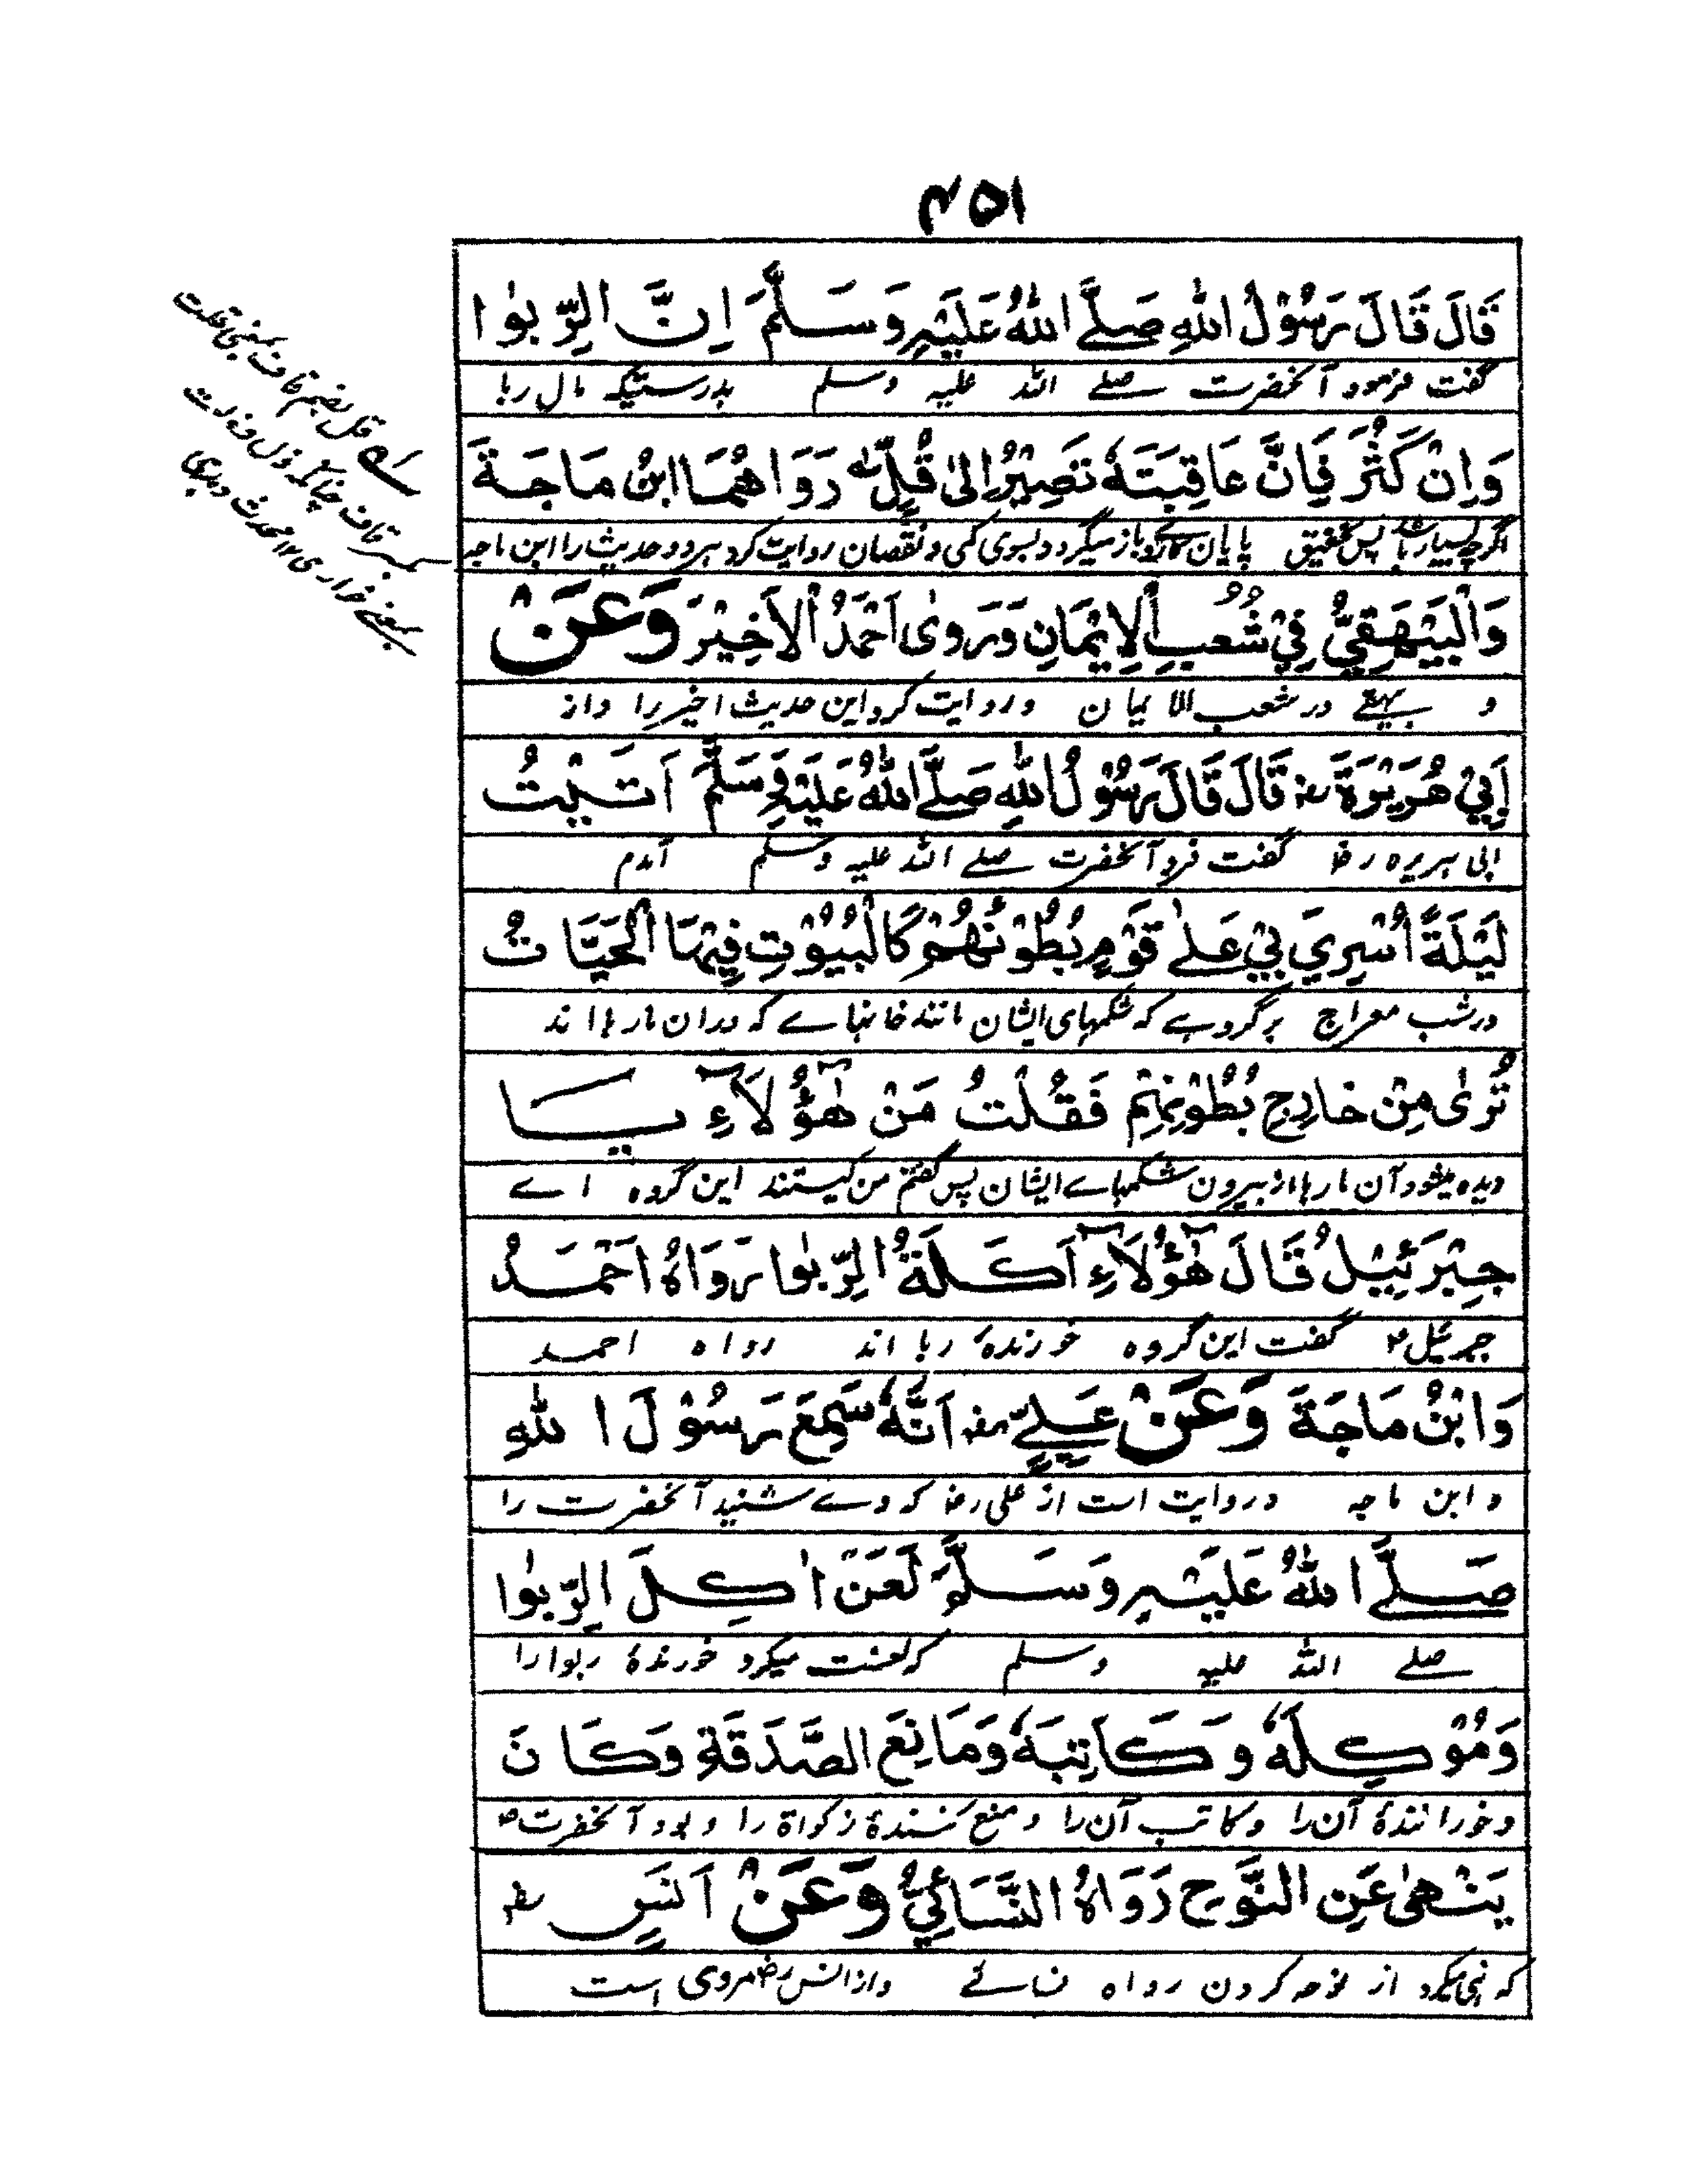 ۴۵۱
قَالَ قَالَ رَسُوْلُ اللّٰهِ صَلَّے اللّٰهُ عَلَيْهِ وَسَلَّمَ اِنَّ الرِّبٰوا
گفت فرمود آنحضرت صلے اللہ علیہ وسلم بدرستیکہ مال ربا
وَاِنْ كَثُرَ فَاِنَّ عَاقِبَتَهٗ تَصِيْرُ اِلٰى قُلٍّ رَوَاهُمَا ابْنُ مَاجَةَ
اگرچہ بسیار باشد پس تحقیق پایان کار او باز میگردد بسوی کمی و نقصان روایت کرد ہردو حدیث را ابن ماجہ
وَالْبَيْهَقِيُّ فِيْ شُعَبِ الْاِيْمَانِ وَرَوٰى اَحْمَدُ الْاَخِيْرَ وَعَنْ
و بیہقے در شعب الایمان و روایت کرد این حدیث اخیر را و از
اَبِيْ هُرَيْرَةَ رض قَالَ قَالَ رَسُوْلُ اللّٰهِ صَلَّے اللّٰهُ عَلَيْهِ وَسَلَّمَ اَتَيْتُ
ابی ہریرہ رضا گفت فرمود آنحضرت صلے اللہ علیہ وسلم آمدم
لَيْلَةً اُسْرِيَ بِيْ عَلٰے قَوْمٍ بُطُوْنُهُمْ كَالْبُيُوْتِ فِيْهَا الْحَيَّاتُ
در شب معراج بر گروہے کہ شکمہای ایشان مانند خانہاے کہ دران مارہا اند
تُرٰى مِنْ خَارِجِ بُطُوْنِهِمْ فَقُلْتُ مَنْ هٰٓؤُلَآءِ يَا
دیدہ میشود آن مارہا از بیرون شکمہاے ایشان پس گفتم من کیستند این گروہ اے
جِبْرَئِيْلُ قَالَ هٰٓؤُلَآءِ اَكَلَةُ الرِّبٰوا رَوَاهُ اَحْمَدُ
جبرئیل ؑ گفت این گروہ خورندۂ ربا اند رواہ احمد
وَابْنُ مَاجَةَ وَعَنْ عَلِيٍّ رض اَنَّهٗ سَمِعَ رَسُوْلَ اللّٰهِ
و ابن ماجہ و روایت است از علی رضا کہ وے شنید آنحضرت را
صَلَّے اللّٰهُ عَلَيْهِ وَسَلَّمَ لَعَنَ اٰكِلَ الرِّبٰوا
صلے اللہ علیہ وسلم کہ لعنت میکرد خورندۂ ربوا را
وَمُوْكِلَهٗ وَكَاتِبَهٗ وَمَانِعَ الصَّدَقَةِ وَكَانَ
و خورانندۂ آن را و کاتب آن را و منع کنندۂ زکواۃ را و بود آنحضرت ؐ
يَنْهٰى عَنِ النَّوْحِ رَوَاهُ النَّسَائِيُّ وَعَنْ اَنَسٍ رض
کہ نہی میکرد از نوحہ کردن رواہ نسائے و از انس رض مروی است
قل بضم قاف بمعنی قلت